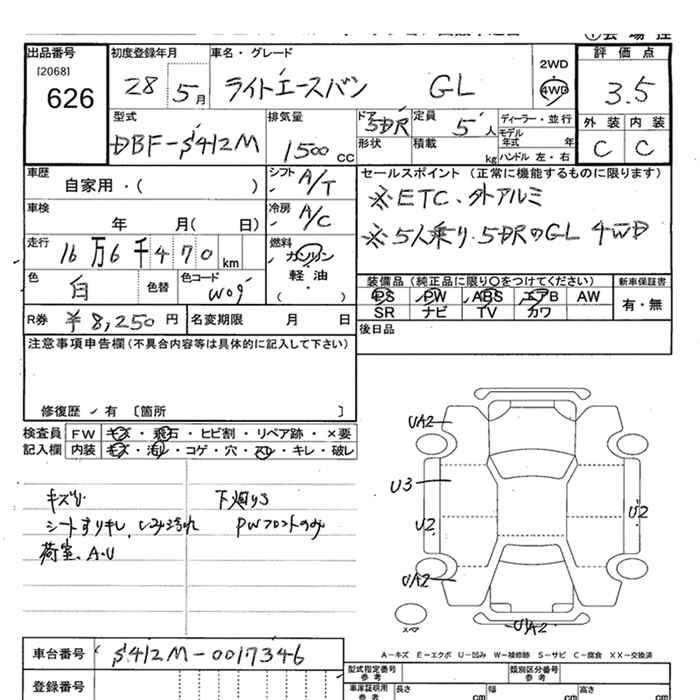 出品番号
[2068]
626
初度登録年月
28 5月
車名・グレード
ライトエースバン GL
2WD
4WD
評価点
3.5
外装 内装
C C
型式
DBF-S412M
排気量
1500 CC
ドア 5DR
形状
定員 5人
積載 kg
ディーラー・並行
モデル年式 年
ハンドル 左・右
車歴
自家用・( )
シフト A/T
車検
年 月( 日)
冷房 A/C
走行
16万6千470km
燃料
ガソリン
軽・油
( )
色
白
色替
色コード
W09
セールスポイント (正常に機能するものに限ります)
※ETC、外アルミ
※5人乗り.5DRのGL 4WD
装備品(純正品に限り○をつけてください)
PS PW ABS エアB AW
SR ナビ TV カワ
新車保証書
有・無
R券 ¥8,250円
名変期限 月 日
後日品
注意事項申告欄(不具合内容等は具体的に記入して下さい)
修復歴 有 〔箇所 〕
検査員 FW キズ・飛石・ヒビ割・リペア跡・×要
記入欄 内装 キズ・汚れ・コゲ・穴・スレ・キレ・破レ
下廻りS
シートすりキレ、しみ汚れ
PWフロントのみ
荷室、A.U
UA2
U3
U2
U2
UA2
UA2
スペア
A-キズ E-エクボ U-凹み W-補修跡 S-サビ C-腐食 XX-交換済
車台番号 S412M-0017346
登録番号
型式指定番号
参考
類別区分番号
参考
車庫証明用
参考
長さ cm
幅 cm
高さ cm